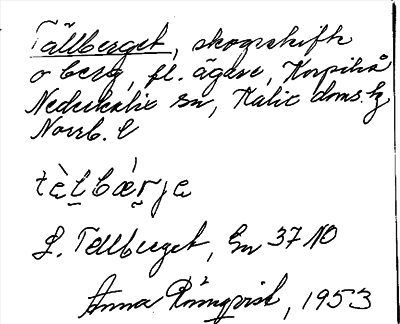 Tällberget, skogsskifte
o berg, fl. ägare, Korpikå
Nederkalix sn, Kalix doms. hg
Norrb. l
tὲlbærje
L. Tällberget, Gn 37 NO
Anna Rönnqvist, 1953